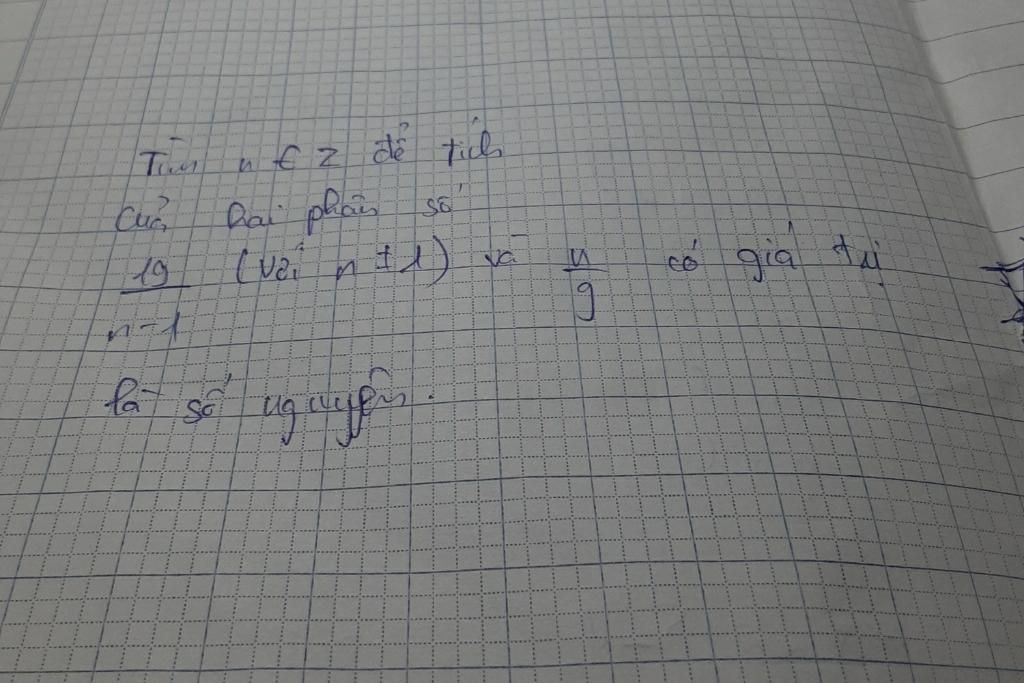 Tìm n ∈ Z để tích
của hai phân số
19/(n-1) (với n ≠ 1) và n/9 có giá trị
là số nguyên.